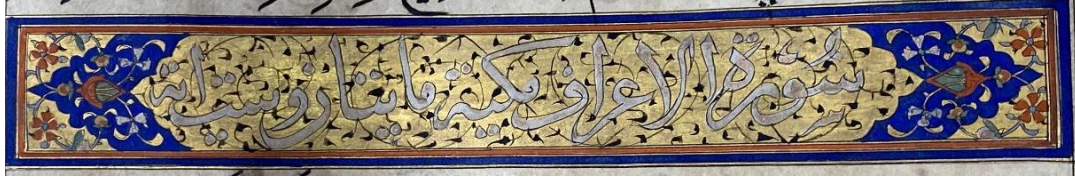 سورة الاعراف مكية مايتان وست اية